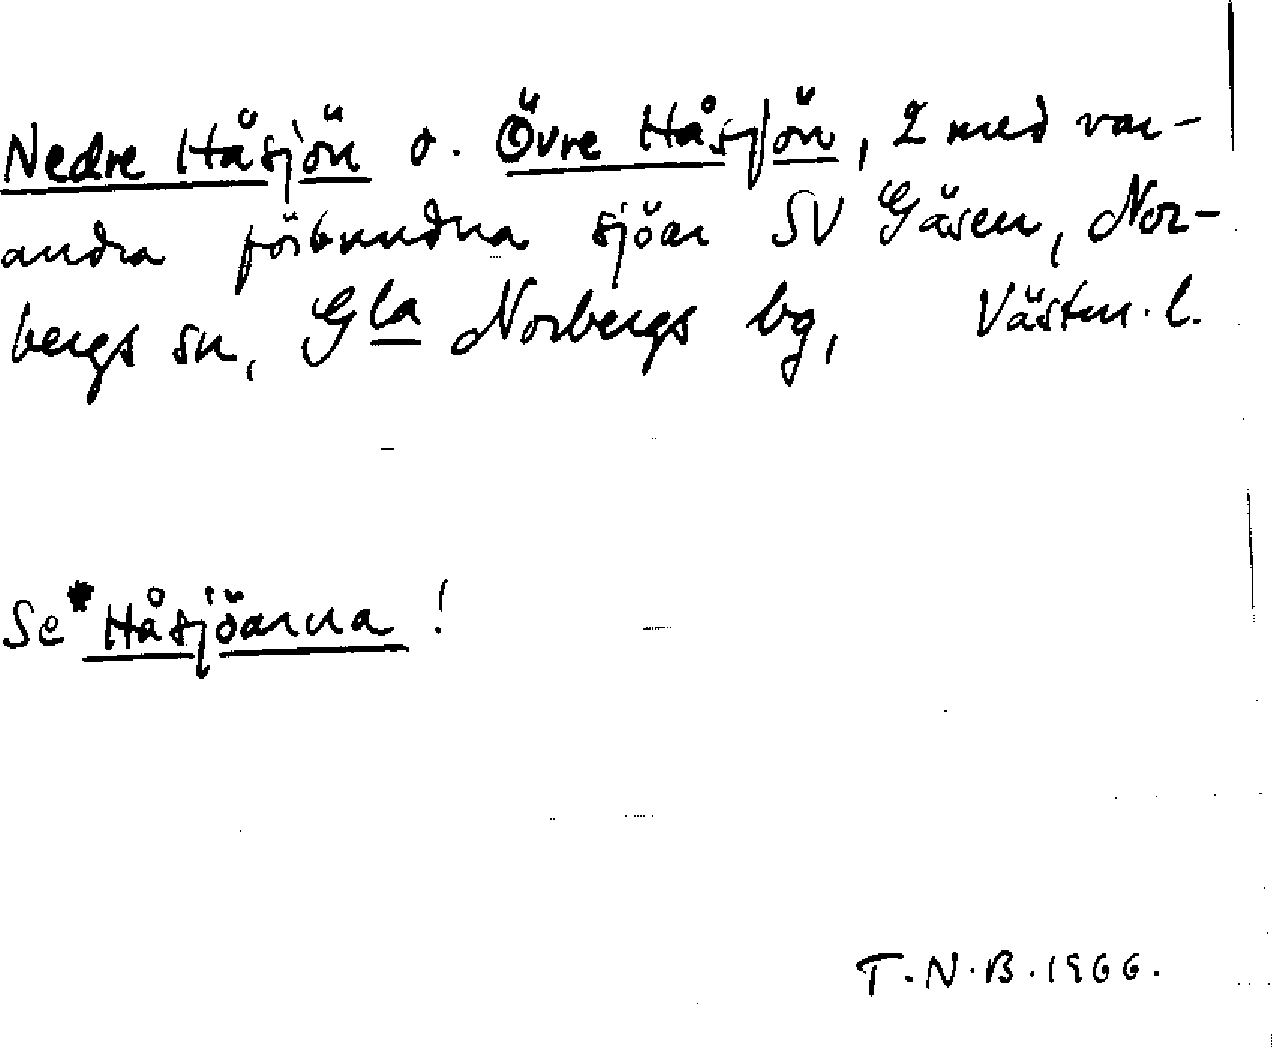 Nedre Håsjön o. Övre Håsjön, 2 med var-
andra förbundna sjöar SV Gåsen, Nor-
bergs sn, Gla Norbergs bg, Västm. l.
Se Håsjöarna!
T.N.B. 1966.